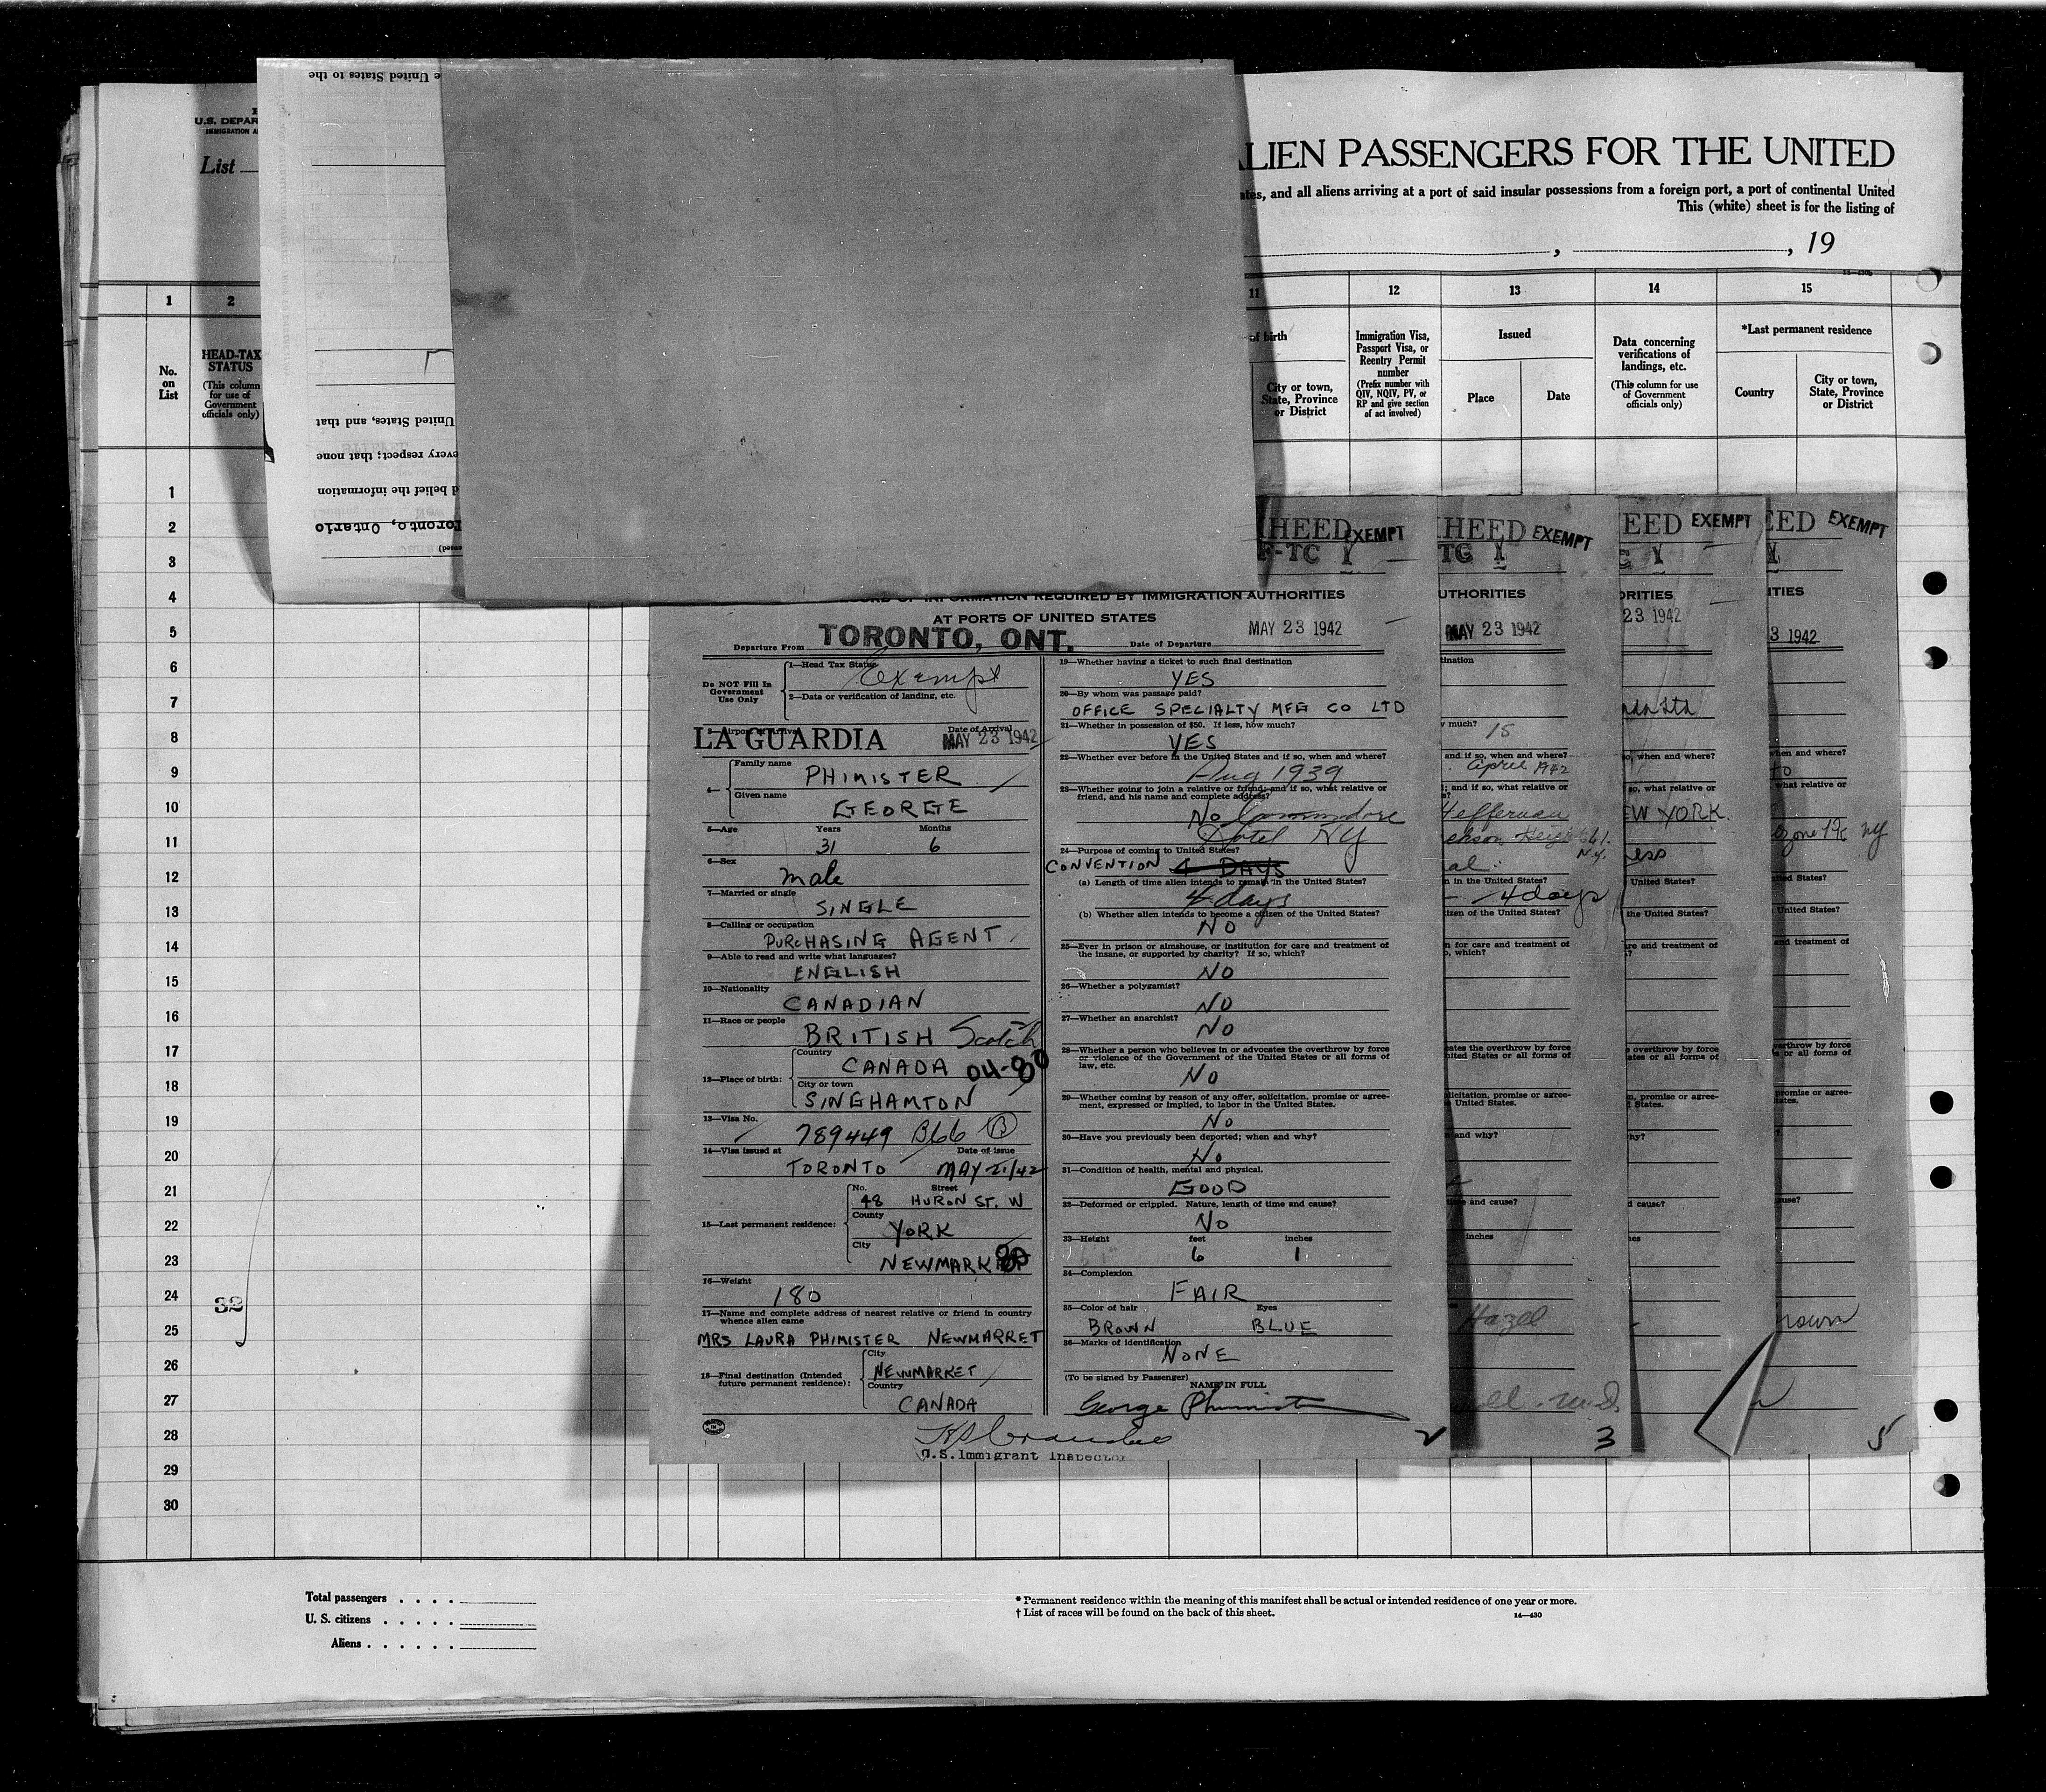 U.S. DEPAR
IMMIGRATION A
List
e United States to the
United States, and that
every respect; that none
d belief the information
Toronto, Ontario
ALIEN PASSENGERS FOR THE UNITED
ates, and all aliens arriving at a port of said insular possessions from a foreign port, a port of continental United
This (white) sheet is for the listing of
, , 19
1 2 11 12 13 14 15
No. on List
HEAD-TAX STATUS
(This column for use of Government officials only)
of birth
City or town, State, Province or District
Immigration Visa, Passport Visa, or Reentry Permit number
(Prefix number with QIV, NQIV, PV, or RP and give section of act involved)
Issued
Place Date
Data concerning verifications of landings, etc.
(This column for use of Government officials only)
*Last permanent residence
Country
City or town, State, Province or District
1
2
3
4
5
6
7
8
9
10
11
12
13
14
15
16
17
18
19
20
21
22
23
24
25
26
27
28
29
30
32
HEED EXEMPT
F-TC Y
RECORD OF INFORMATION REQUIRED BY IMMIGRATION AUTHORITIES
AT PORTS OF UNITED STATES
Departure From TORONTO, ONT. Date of Departure MAY 23 1942
Do NOT Fill In Government Use Only
1—Head Tax Status Exempt
2—Data or verification of landing, etc.
3—Airport of Arrival Date of Arrival
LA GUARDIA MAY 23 1942
4— Family name PHIMISTER
Given name GEORGE
5—Age Years Months
31 6
6—Sex male
7—Married or single SINGLE
8—Calling or occupation
PURCHASING AGENT
9—Able to read and write what languages?
ENGLISH
10—Nationality
CANADIAN
11—Race or people
BRITISH Scotch
12—Place of birth: Country CANADA 04-80
City or town SINGHAMTON
13—Visa No. 789449 B66 B
14—Visa issued at Date of issue
TORONTO MAY 21/42
15—Last permanent residence: No. Street
48 HURON ST. W
County YORK
City NEWMARKET
16—Weight 180
17—Name and complete address of nearest relative or friend in country whence alien came
MRS LAURA PHIMISTER NEWMARKET
18—Final destination (Intended future permanent residence): City NEWMARKET
Country CANADA
19—Whether having a ticket to such final destination
YES
20—By whom was passage paid?
OFFICE SPECIALTY MFG CO LTD
21—Whether in possession of $50. If less, how much?
YES
22—Whether ever before in the United States and if so, when and where?
Aug 1939
23—Whether going to join a relative or friend; and if so, what relative or friend, and his name and complete address?
No Commodore
Hotel NY
24—Purpose of coming to United States?
CONVENTION 4 DAYS
(a) Length of time alien intends to remain in the United States?
4 days
(b) Whether alien intends to become a citizen of the United States?
NO
25—Ever in prison or almshouse, or institution for care and treatment of the insane, or supported by charity? If so, which?
NO
26—Whether a polygamist?
NO
27—Whether an anarchist?
NO
28—Whether a person who believes in or advocates the overthrow by force or violence of the Government of the United States or all forms of law, etc.
NO
29—Whether coming by reason of any offer, solicitation, promise or agreement, expressed or implied, to labor in the United States.
No
30—Have you previously been deported; when and why?
No
31—Condition of health, mental and physical.
GOOD
32—Deformed or crippled. Nature, length of time and cause?
No
33—Height feet inches
6 1
34—Complexion
FAIR
35—Color of hair Eyes
BROWN BLUE
36—Marks of identification
NONE
(To be signed by Passenger)
NAME IN FULL
George Phimister
U.S. Immigrant Inspector
2
HEED EXEMPT
TG Y
UTHORITIES
MAY 23 1942
tination
w much? 15
and if so, when and where?
April 1942
; and if so, what relative or
Heffernan
n in the United States?
4 days
izen of the United States?
n for care and treatment of
o, which?
cates the overthrow by force
nited States or all forms of
licitation, promise or agree-
United States.
and why?
time and cause?
inches
Hazel
M.D.
3
EED EXEMPT
C Y
ORITIES
23 1942
so, when and where?
so, what relative or
EW YORK.
ess
United States?
the United States?
re and treatment of
e overthrow by force
ates or all forms of
n, promise or agree-
d States.
hy?
d cause?
hes
EED EXEMPT
Y
ITIES
3 1942
hen and where?
to
what relative or
ozone Pk NY
ted States?
United States?
nd treatment of
verthrow by force
s or all forms of
promise or agree-
ates.
?
ause?
rown
5
Total passengers . . . .
U. S. citizens . . . . .
Aliens . . . . . .
* Permanent residence within the meaning of this manifest shall be actual or intended residence of one year or more.
† List of races will be found on the back of this sheet.
14—430